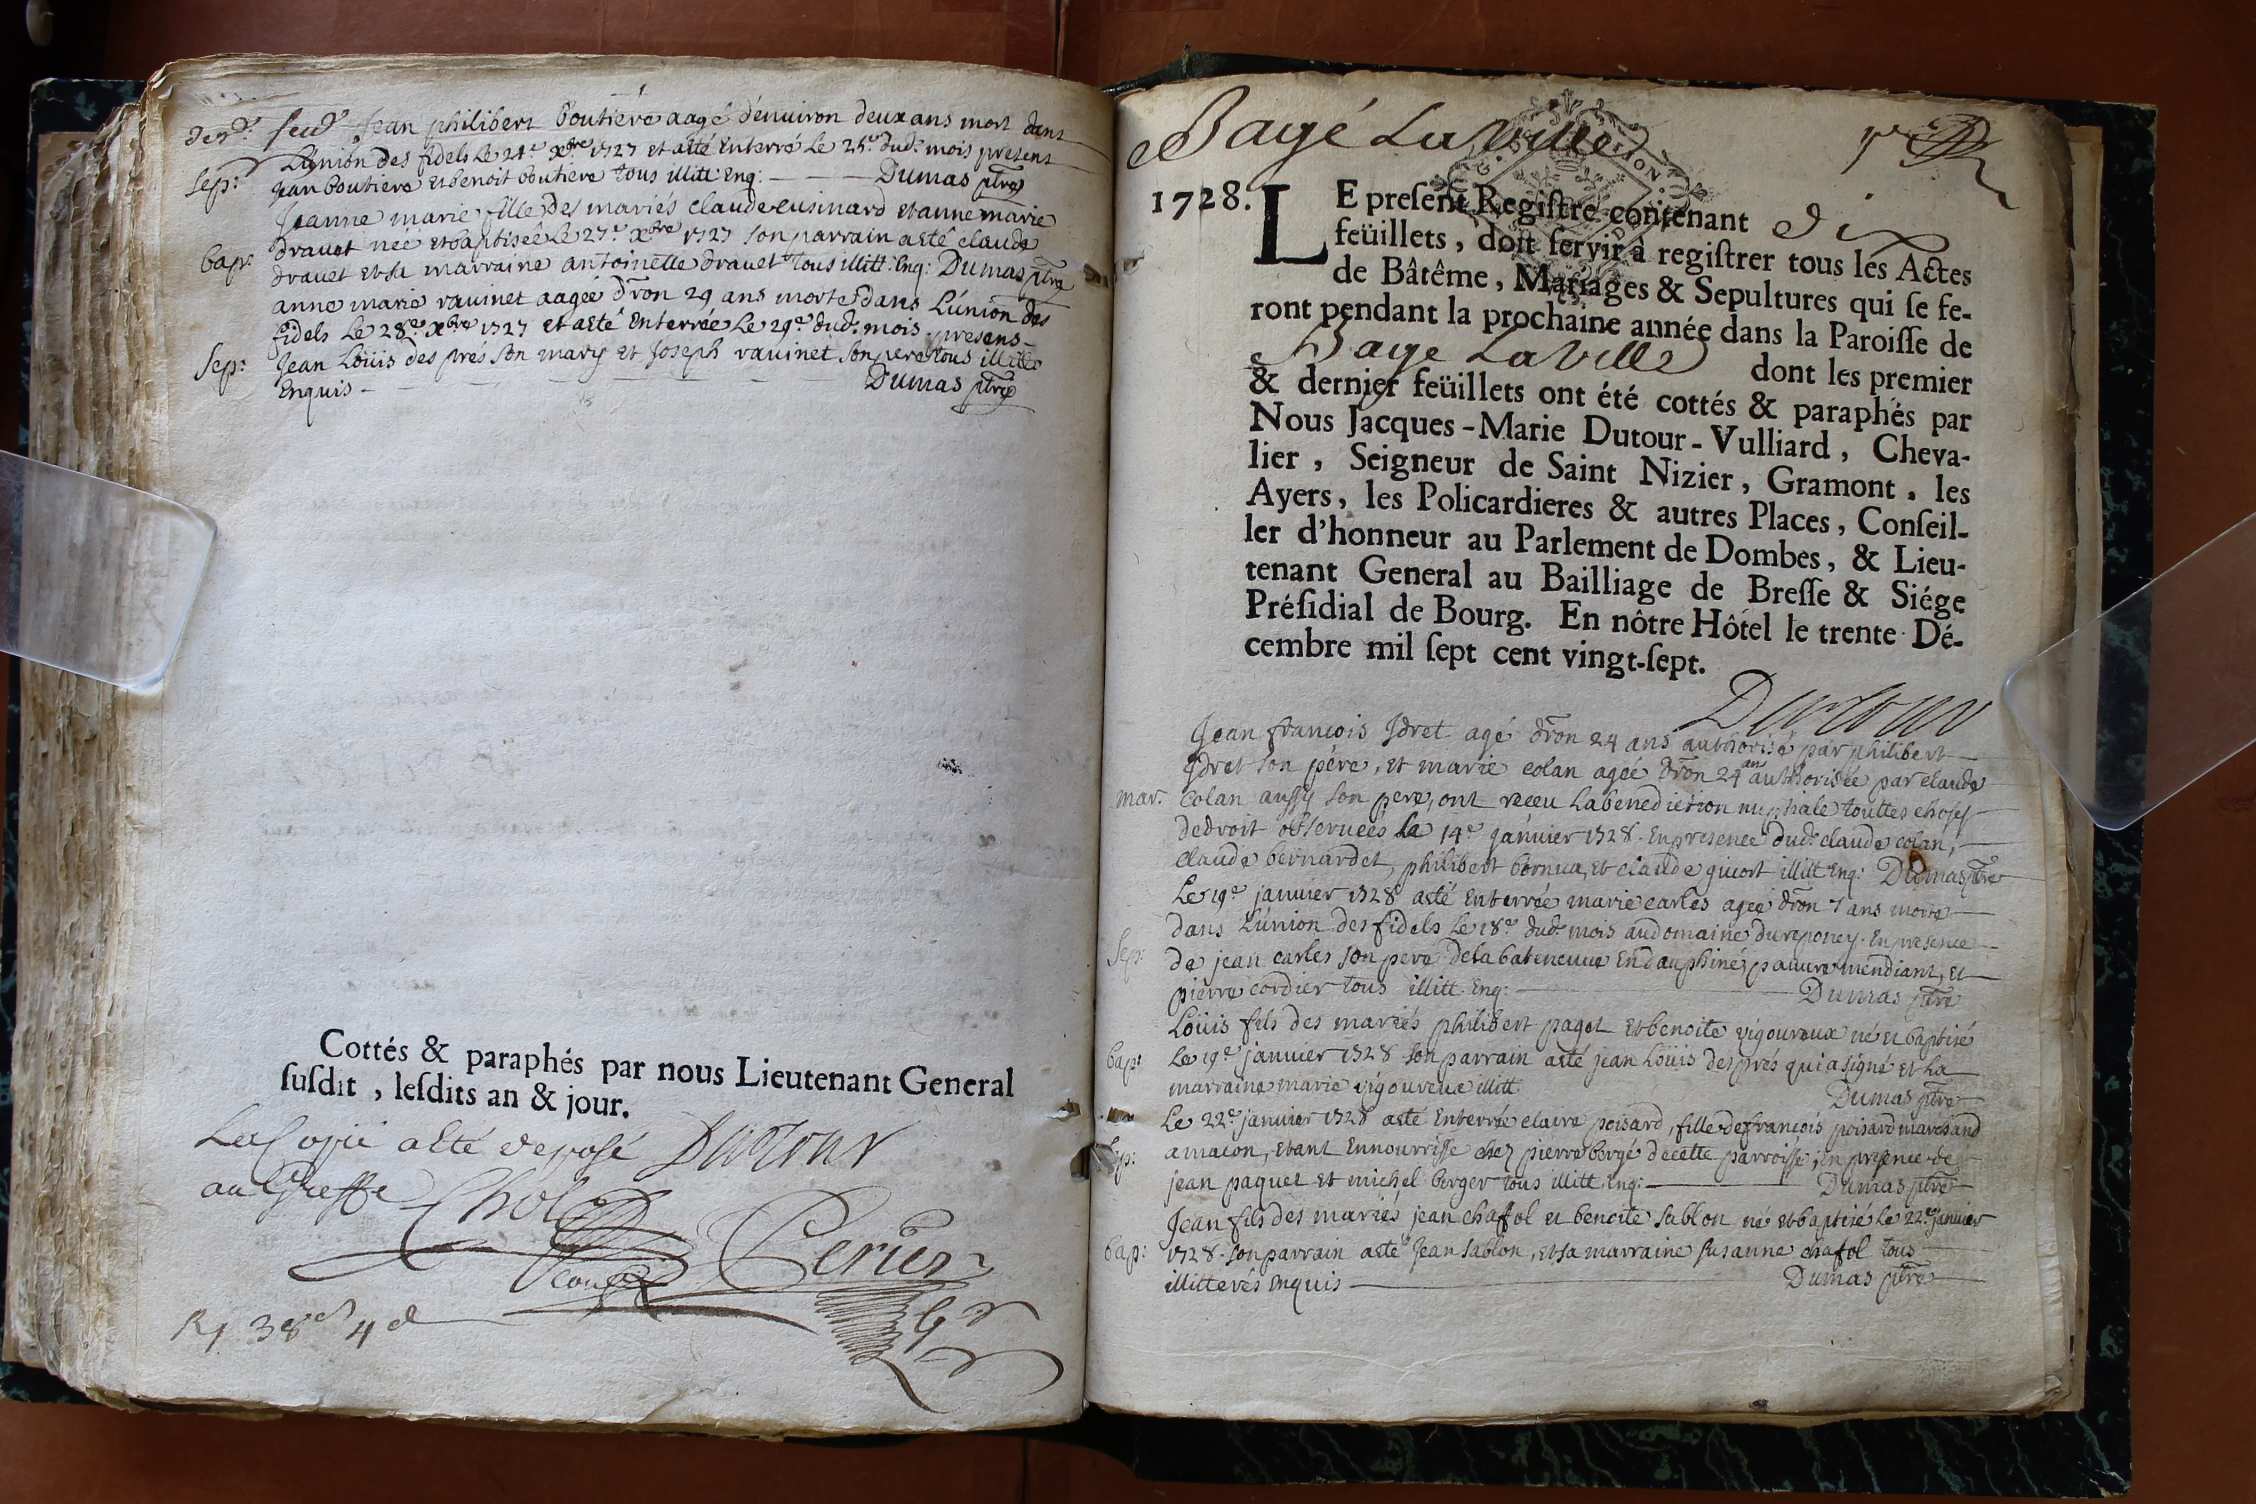 der.r feuil. Jean philibert boutiere aagé d'enuiron deux ans mort dans
L'union des fidels le 24.e xbre 1727 et a esté Enterré Le 25.e dud. mois present
sep: jean boutiere et benoit boutiere tous illitt: Enq: Dumas ptre
Jeanne marie fille des mariés claude cusinard et anne marie
drauet née et baptisée Le 27.e xbre 1727 son parrain a esté claude
bap: drauet et sa marraine antoinette drauet tous illitt: Enq: Dumas ptre
anne marie rauinet aagée d'ron 29 ans morte dans L'union des
fidels Le 28.e xbre 1727 et a esté Enterrée Le 29.e dud. mois presens
sep: jean Loüis des prés son mary et Joseph rauinet son pere tous illitt
Enquis Dumas ptre
Cottés & paraphés par nous Lieutenant General
susdit, lesdits an & jour.
La Copie a esté deposé Dutour
au Greffe Chol
Perier
R 38 s 4 d
Bagé La Ville
1728. LE present Registre contenant dix
feüillets, doit servir à registrer tous les Actes
de Bâtême, Mariages & Sepultures qui se fe-
ront pendant la prochaine année dans la Paroisse de
Bage La Ville dont les premier
& dernier feüillets ont été cottés & paraphés par
Nous Jacques-Marie Dutour-Vulliard, Cheva-
lier, Seigneur de Saint Nizier, Gramont, les
Ayers, les Policardieres & autres Places, Conseil-
ler d'honneur au Parlement de Dombes, & Lieu-
tenant General au Bailliage de Bresse & Siége
Présidial de Bourg. En nôtre Hôtel le trente Dé-
cembre mil sept cent vingt-sept.
Dutour
Jean francois Jdret agé d'ron 24 ans authorisé par philibert
Jdret son pére, et marie colan agée d'ron 24 ans authorisée par claude
mar. Colan aussy son pere, ont receu La benediction nuptiale touttes choses
de droit obseruées Le 14.e januier 1728. En presence dud. claude colan,
claude bernardet, philibert bornua, et claude guiort illitt Enq: Dumas ptre
Le 19.e januier 1728 a esté Enterrée marie carles agée d'ron 7 ans morte
dans L'union des fidels Le 18.e dud. mois au domaine du reponey. En presence
sep: de jean carles son pere de la bateneuue En dauphiné, pauure mendiant, et
pierre cordier tous illitt. Enq: Dumas ptre
Loüis fils des mariés philibert pagot et benoite vigoureux né et baptisé
bap: Le 19.e januier 1728 son parrain a esté jean Loüis després qui a signé et La
marraine marie vigoureux illitt. Dumas ptre
Le 22.e januier 1728 a esté Enterrée claire poisard, fille de francois poisard marchand
sep: a macon, etant En nourrisse chez pierre bergé de cette parroisse, en presence de
jean paquet et michel berger tous illitt. Enq: Dumas ptre
Jean fils des mariés jean chafol et benoite sablon né et baptisé Le 22.e januier
bap: 1728. son parrain a esté Jean sablon, et sa marraine susanne chafol tous
illitterés Enquis Dumas ptre